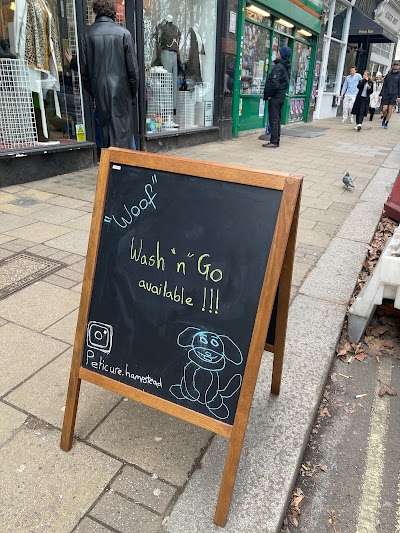 "Woof"
Wash "n" Go
available !!!
Peticure.hampstead